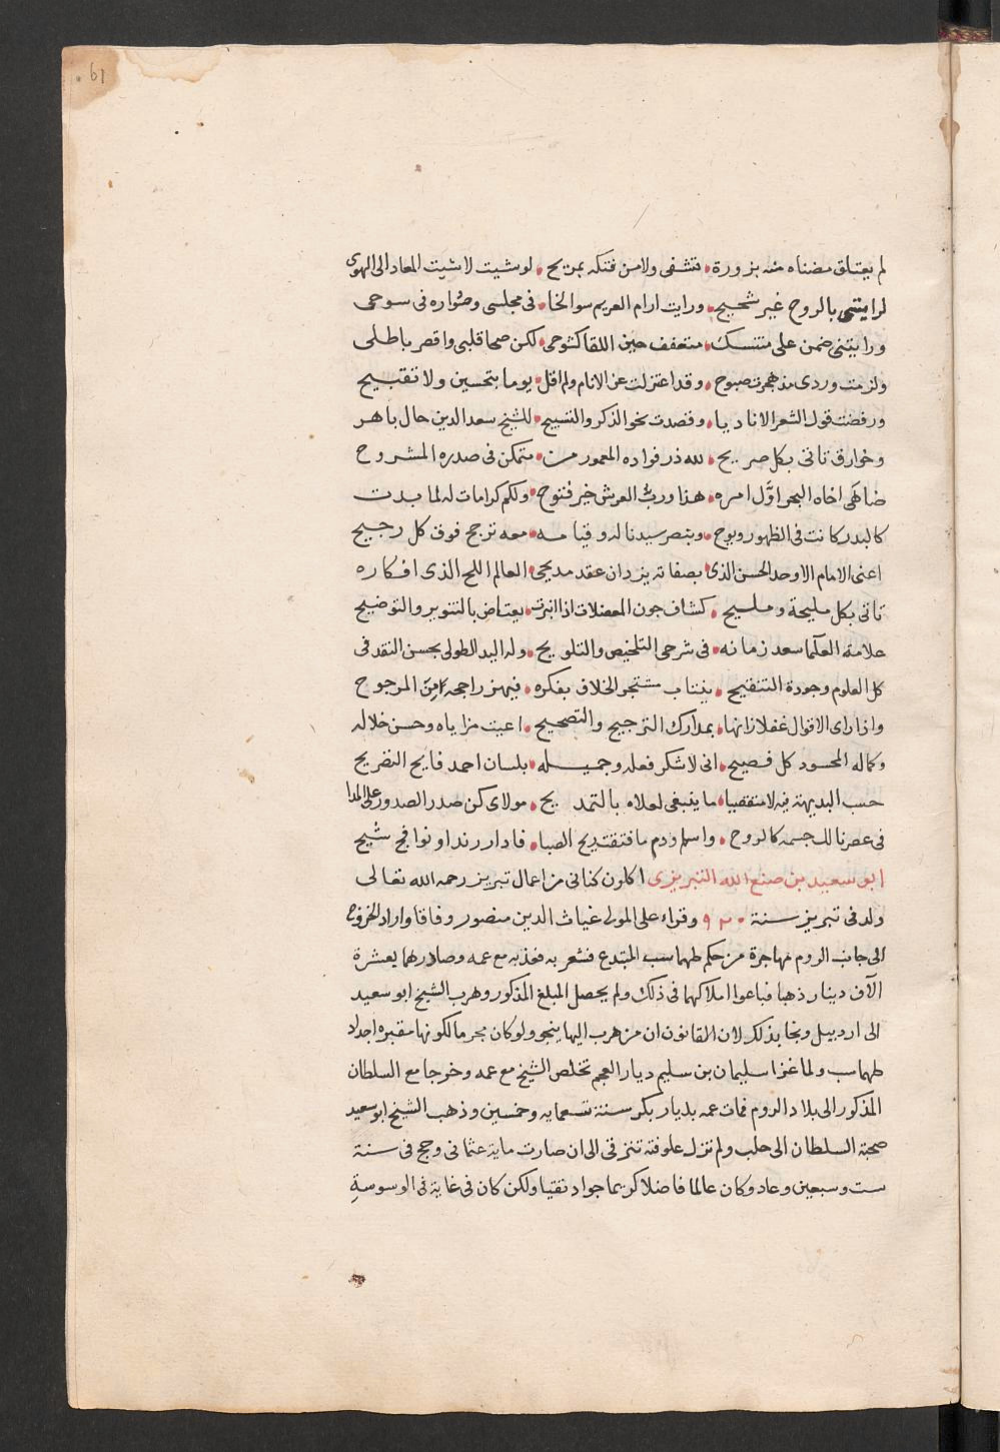 61
لم يعتلق مضناه منه بزورة • تشفى ولا من فتكه بمريح • لو شيت لا شيت المعاد الى الهوى
لرايتنى بالروح غير شحيح • ورايت ارام العريم سوالخا • فى مجلسى وصُواره فى سوحى
ورايتنى ضمن على متنسك • متعفف حين اللقا كشوحى • لكن صحا قلبى واقصر باطلى
ولزمت وردى مذ هجرت صبوح • وقد اعتزلت عن الانام ولم اقل • يوما بتحسين ولا تقبيح
ورفضت قول الشعر الانا ديا • وقصدت نحو الذكر والتسبيح • للشيخ سعد الدين حال باهر
وخوارق تاتى بكل صريح • لله در فواده المعمور من • متمكن فى صدره المشروح
ضاهَى اخاه البحر اوَّل امره • هذا وربّ العرش خير فتوح • ولكم كرامات له لما بدت
كالبدر كانت فى الظهور ويوح • وبنصر سيدنا له وقيامه • معه ترجح فوق كل رجيح
اعنى الامام الاوحد الحسن الذى • بصفاته يزدان عقد مديحى • العالم اللح الذى افكاره
تاتى بكل مليحة ومليح • كشاف جون المعضلات اذا انبرت • يعتاض بالتنوير والتوضيح
علامة العلما سعد زمانه • فى شرحى التلخيص والتلويح • وله اليد الطولى بحسن النقد فى
كل العلوم وجودة التنقيح • ينتاب مشتجر الخلاف بفكره • فيهز راجحه من المرجوح
واذا راى الاقوال غفلا زانها • بمدارك الترجيح والتصحيح • اعيت مزاياه وحسن خلاله
وكماله المحسود كل فصيح • انى لاشكر فعله وجميله • بلسان احمد فايح التفريح
حسب البديهة فيه لا متقصيا • ما ينبغى لعلاه بالتمديح • مولاى كن صدر الصدور على المدا
فى عصرنا للجسمه كالروح • واسلم ودم ما فتقت ريح الصبا • فادار رند او نوافج شيح
ابو سعيد بن صنع الله التبريزى اكلون كنانى من اعمال تبريز رحمه الله تعالى
ولد فى تبريز سنة ٩٢٠ وقراء على المولى غياث الدين منصور وفاقا واراد الخروج
الى جانب الروم مهاجرة من حكم طهماسب المبتدع فشعر به فعذبه مع عمه وصادرهما بعشرة
الآف دينار ذهبا فباعوا املاكهما فى ذلك ولم يحصل المبلغ المذكور وهرب الشيخ ابو سعيد
الى اردبيل ونجا بذلك لان القانون ان من هرب اليها ينجو ولو كان مجرما لكونها مقبرة اجداد
طهماسب ولما غزا سليمان بن سليم ديار العجم تخلص الشيخ مع عمه وخرجا مع السلطان
المذكور الى بلاد الروم فمات عمه بديار بكر سنة تسعمايه وخمسين وذهب الشيخ ابو سعيد
صحبة السلطان الى حلب ولم تزل علوفته تترقى الى ان صارت ماية عثمانى وحج فى سنة
ست وسبعين وعاد وكان عالما فاضلا كريما جوادا تقيا ولكن كان فى غاية فى الوسوسة